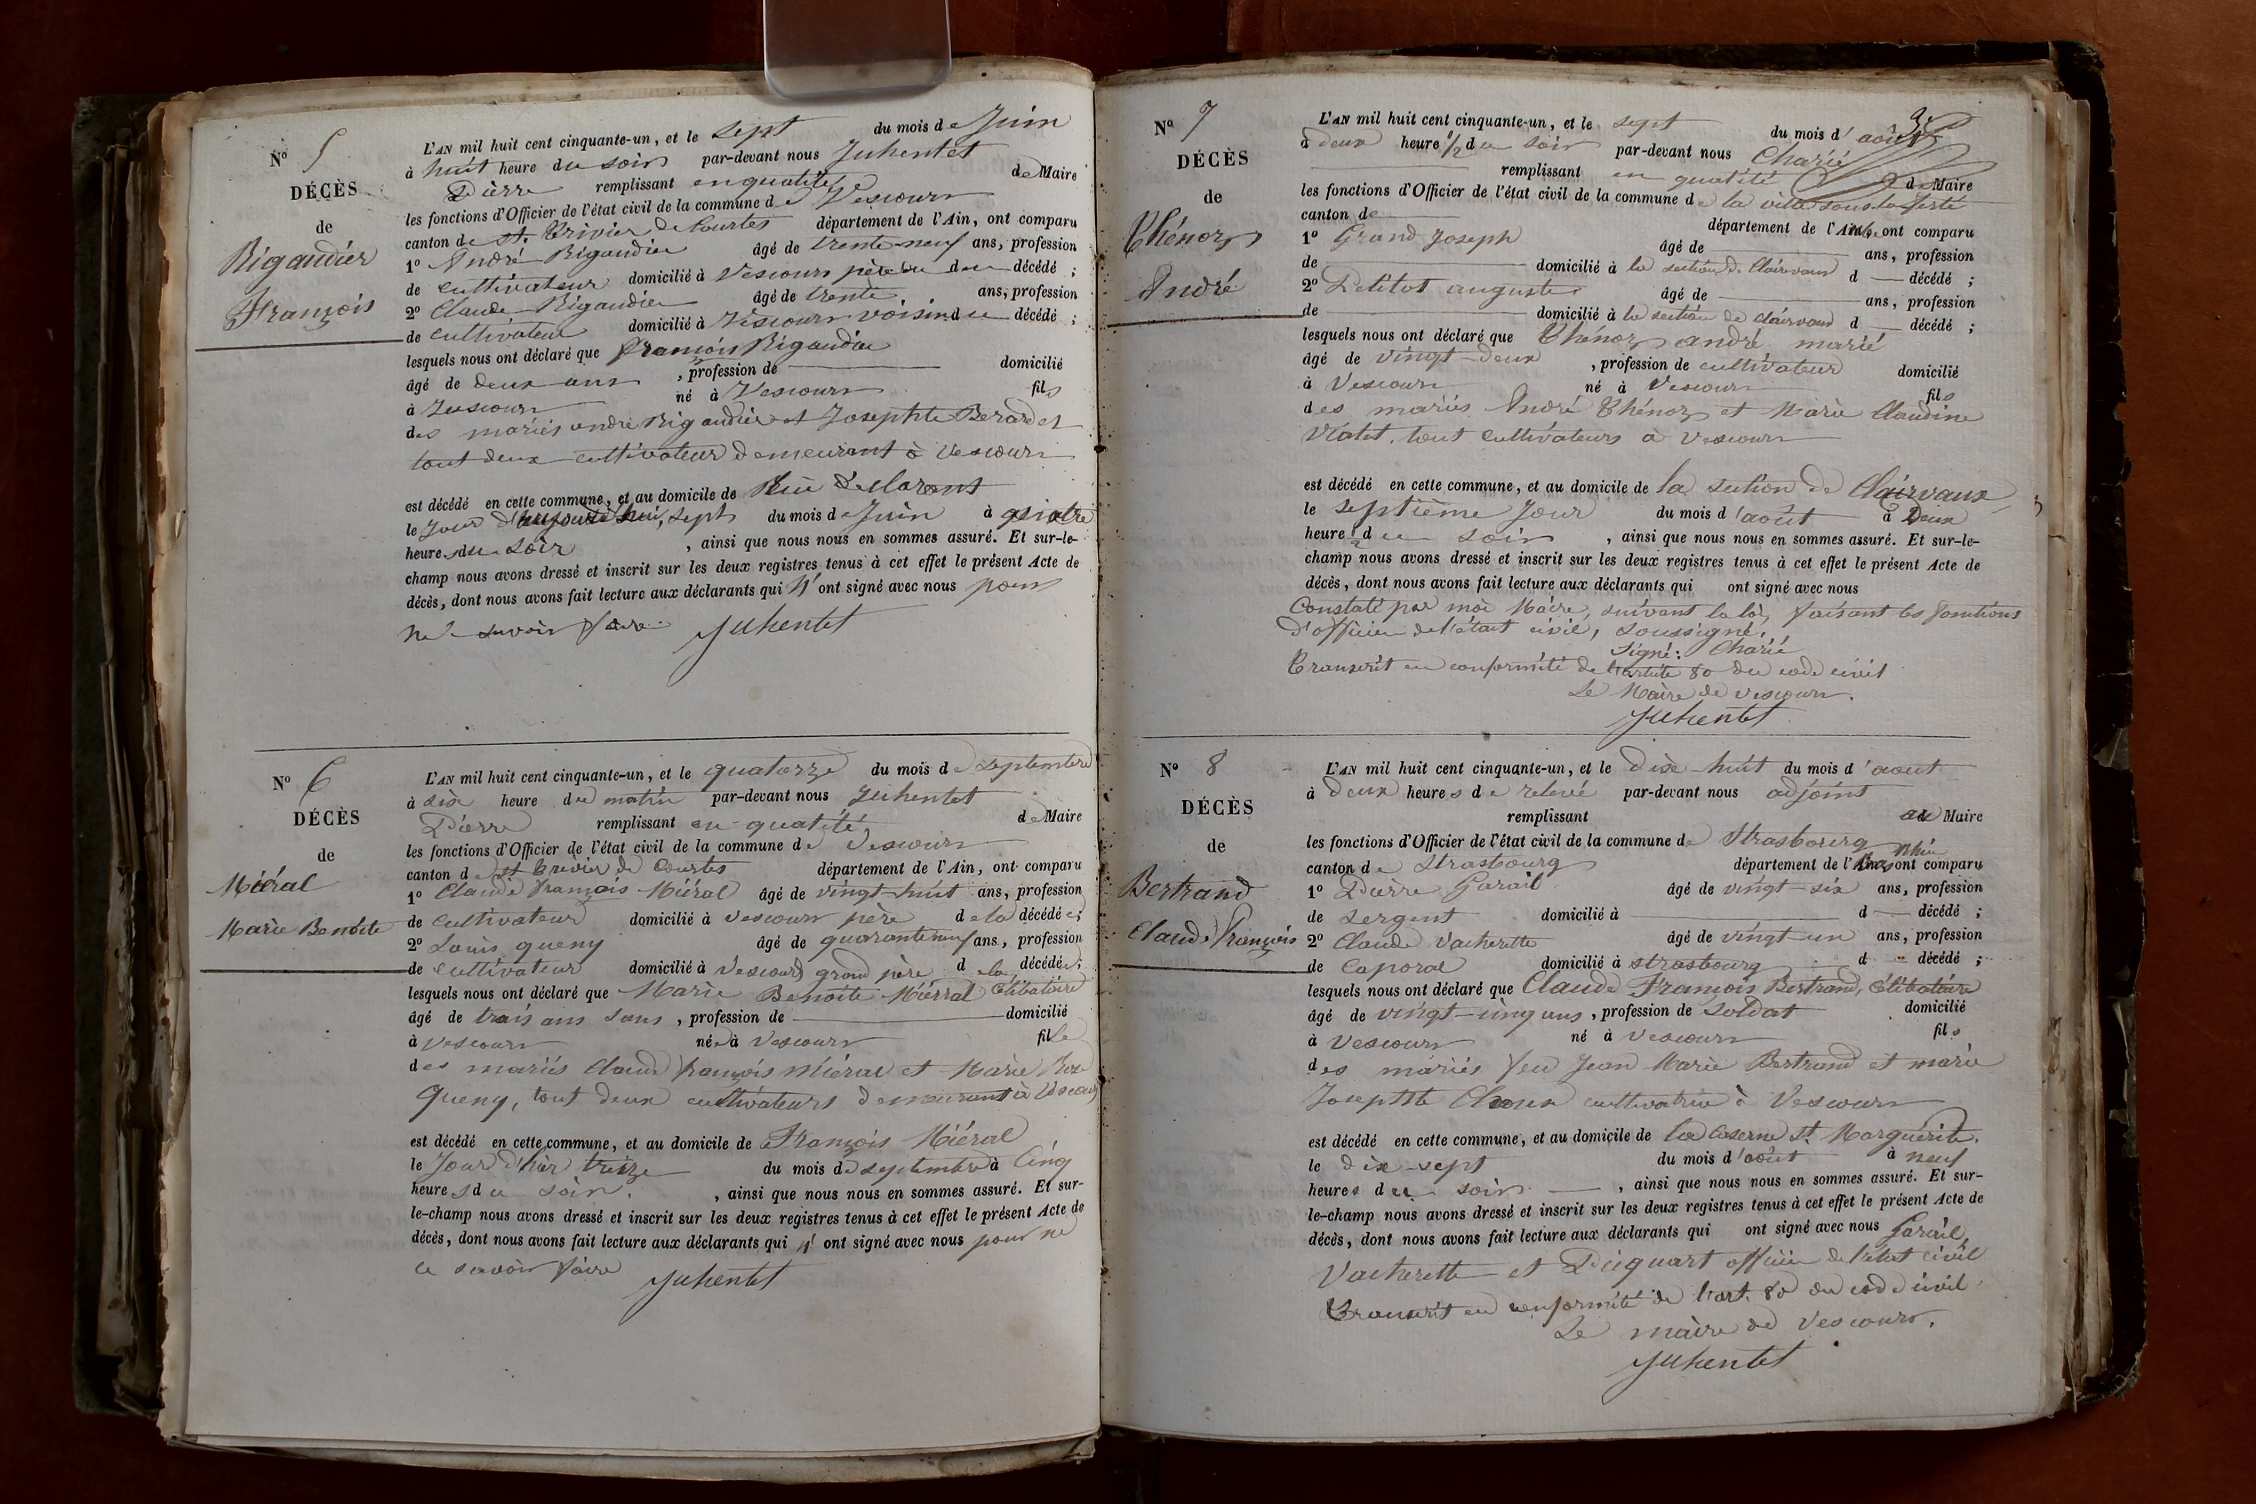 N° 5
DÉCÈS
de
Rigaudier
François
L'AN mil huit cent cinquante-un, et le sept du mois de Juin
à huit heure du soir par-devant nous Juhentet
Pierre remplissant en qualité de Maire
les fonctions d'Officier de l'état civil de la commune de Vescours
canton de St. Trivier de Courtes département de l'Ain, ont comparu
1° André Rigaudier âgé de trente-neuf ans, profession
de cultivateur domicilié à Vescours père du décédé ;
2° Claude Rigaudier âgé de trente ans, profession
de cultivateur domicilié à Vescours voisin du décédé ;
lesquels nous ont déclaré que françois Rigaudier
âgé de deux ans , profession de domicilié
à Vescours né à Vescours fils
des mariés andré Rigaudier et Josephte Berardet
tout deux cultivateur demeurant à Vescours
est décédé en cette commune, et au domicile de
le Jour d'aujourd'hui, sept du mois de Juin à quatre
heures du soir , ainsi que nous nous en sommes assuré. Et sur-le-
champ nous avons dressé et inscrit sur les deux registres tenus à cet effet le présent Acte de
décès, dont nous avons fait lecture aux déclarants qui n'ont signé avec nous pour
ne savoir faire Juhentet
N° 6
DÉCÈS
de
Miéral
Marie Benoite
L'AN mil huit cent cinquante-un, et le quatorze du mois de septembre
à six heure du matin par-devant nous Juhentet
Pierre remplissant en qualité de Maire
les fonctions d'Officier de l'état civil de la commune de Vescours
canton de St Trivier de Courtes département de l'Ain, ont comparu
1° Claude françois Miéral âgé de vingt-huit ans, profession
de cultivateur domicilié à vescours père de la décédée ;
2° Louis queny âgé de quarante neuf ans, profession
de cultivateur domicilié à Vescours grand père de la décédée ;
lesquels nous ont déclaré que Marie Benoite Miéral Célibataire
âgé de trois ans sans , profession de domicilié
à vescours née à Vescours fille
des mariés Claude françois Miéral et Marie Rose
Queny, tout deux cultivateurs demeurant à Vescours
est décédé en cette commune, et au domicile de François Miéral
le Jour d'hier treize du mois de septembre à Cinq
heures du soir. , ainsi que nous nous en sommes assuré. Et sur-
le-champ nous avons dressé et inscrit sur les deux registres tenus à cet effet le présent Acte de
décès, dont nous avons fait lecture aux déclarants qui n'ont signé avec nous pour ne
le savoir faire Juhentet
N° 7
DÉCÈS
de
Thénoz
André
L'AN mil huit cent cinquante-un, et le sept du mois d'août
à deux heure 1/2 du soir par-devant nous Charié
remplissant en qualité de Maire
les fonctions d'Officier de l'état civil de la commune de la ville sous la ferté
canton de département de l'Aube ont comparu
1° Grand Joseph âgé de ans, profession
de domicilié à la section de Clairvaux d décédé ;
2° Petitot auguste âgé de ans, profession
de domicilié à la section de clairvaux d décédé ;
lesquels nous ont déclaré que Thénoz andré marié
âgé de vingt-deux , profession de cultivateur domicilié
à Vescours né à Vescours fils
des mariés André Thénoz et Marie Claudine
Violet, tout cultivateurs à Vescours
est décédé en cette commune, et au domicile de la section de Clairvaux
le septième Jour du mois d'août à Deux
heure 1/2 du soir , ainsi que nous nous en sommes assuré. Et sur-le-
champ nous avons dressé et inscrit sur les deux registres tenus à cet effet le présent Acte de
décès, dont nous avons fait lecture aux déclarants qui ont signé avec nous
Constaté par moi Maire, suivant la loi, faisant les fonctions
d'officier de l'état civil, soussigné.
Signé: Charié
Transcrit en conformité de l'article 80 du code civil
Le Maire de vescours.
Juhentet
N° 8
DÉCÈS
de
Bertrand
Claude François
L'AN mil huit cent cinquante-un, et le dix-huit du mois d'aout
à deux heures de relevé par-devant nous adjoint
remplissant au Maire
les fonctions d'Officier de l'état civil de la commune de Strasbourg
canton de Strasbourg département de Bas Rhin ont comparu
1° Pierre Garail âgé de vingt-six ans, profession
de sergent domicilié à d décédé ;
2° Claude Vacherette âgé de vingt-un ans, profession
de Caporal domicilié à strasbourg d décédé ;
lesquels nous ont déclaré que Claude François Bertrand, célibataire
âgé de vingt-cinq ans , profession de soldat domicilié
à Vescours né à Vescours fils
des mariés feu Jean Marie Bertrand et marie
Josephte cultivatrice à Vescours
est décédé en cette commune, et au domicile de la Caserne St. Marguérite.
le dix-sept du mois d'août à neuf
heures du soir , ainsi que nous nous en sommes assuré. Et sur-
le-champ nous avons dressé et inscrit sur les deux registres tenus à cet effet le présent Acte de
décès, dont nous avons fait lecture aux déclarants qui ont signé avec nous Garail,
Vacherette et Picquart officier de l'état civil
Transcrit en conformité de l'art. 80 du code civil.
Le maire de Vescours.
Juhentet